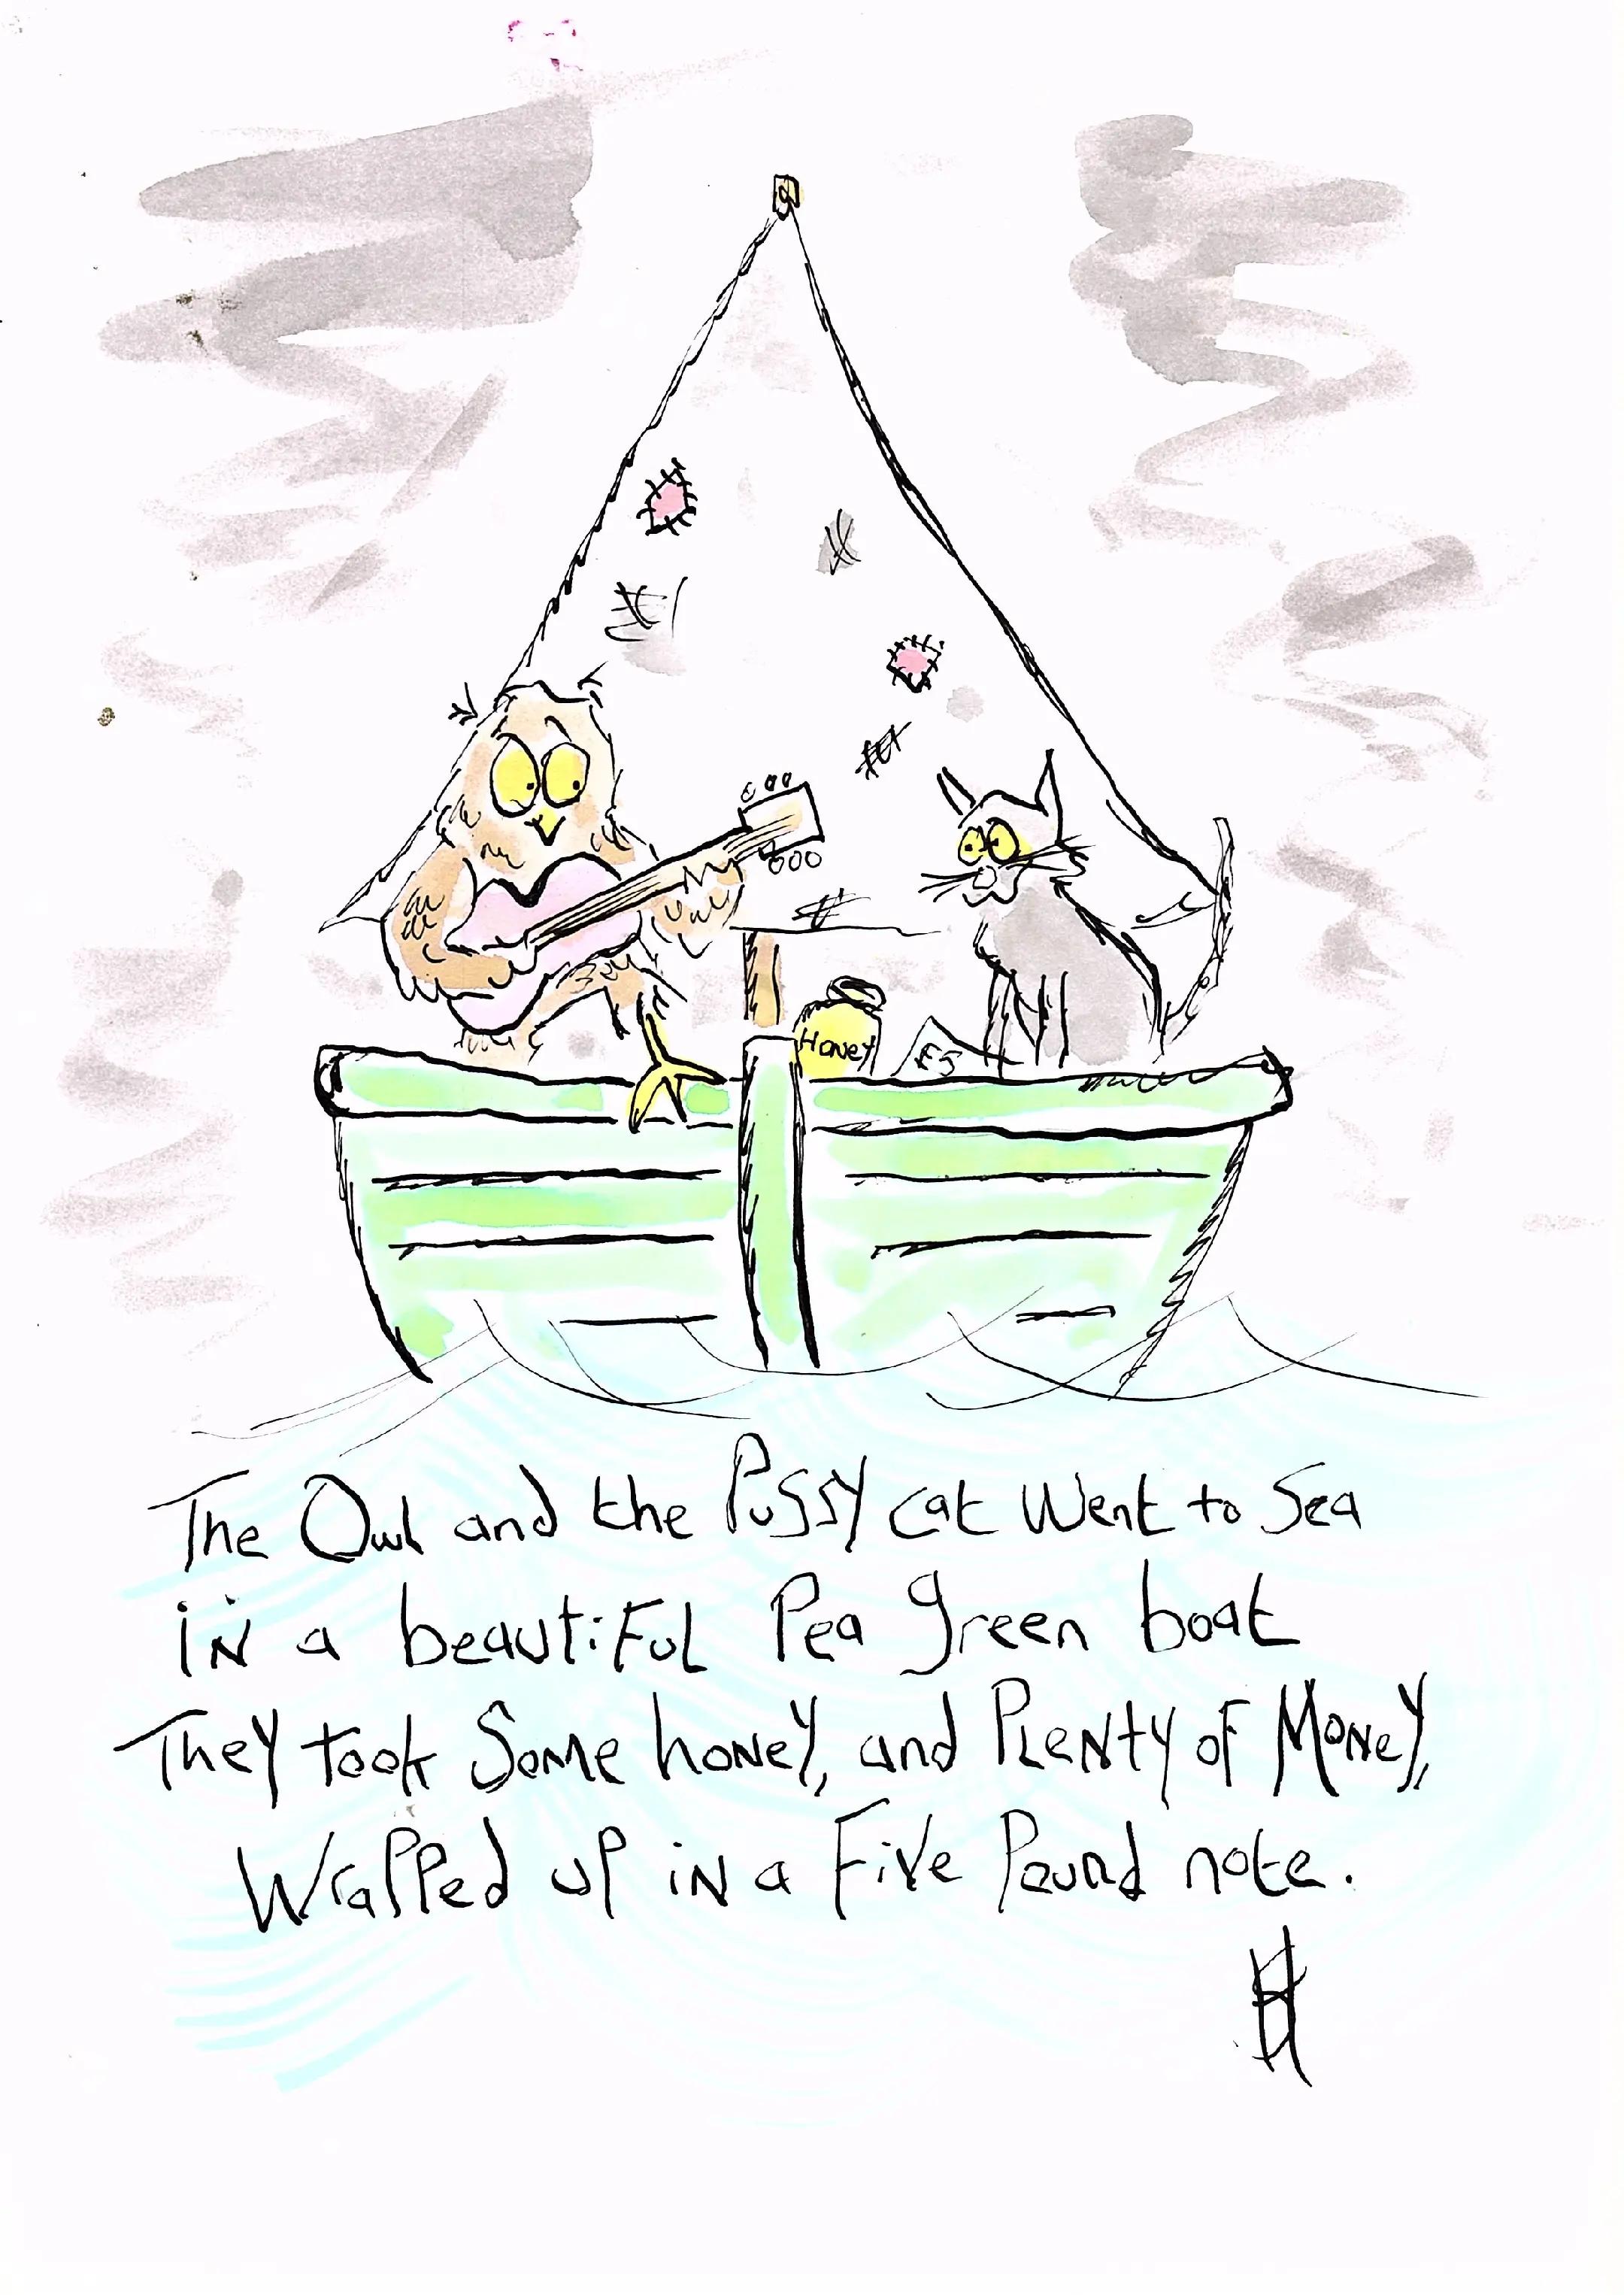 Honey
£5
The Owl and the Pussy cat Went to Sea
iN a beautiFuL Pea green boat
They took Some honey, and PLeNTy oF MoNey,
WraPPed uP iN a FiVe Pound note.